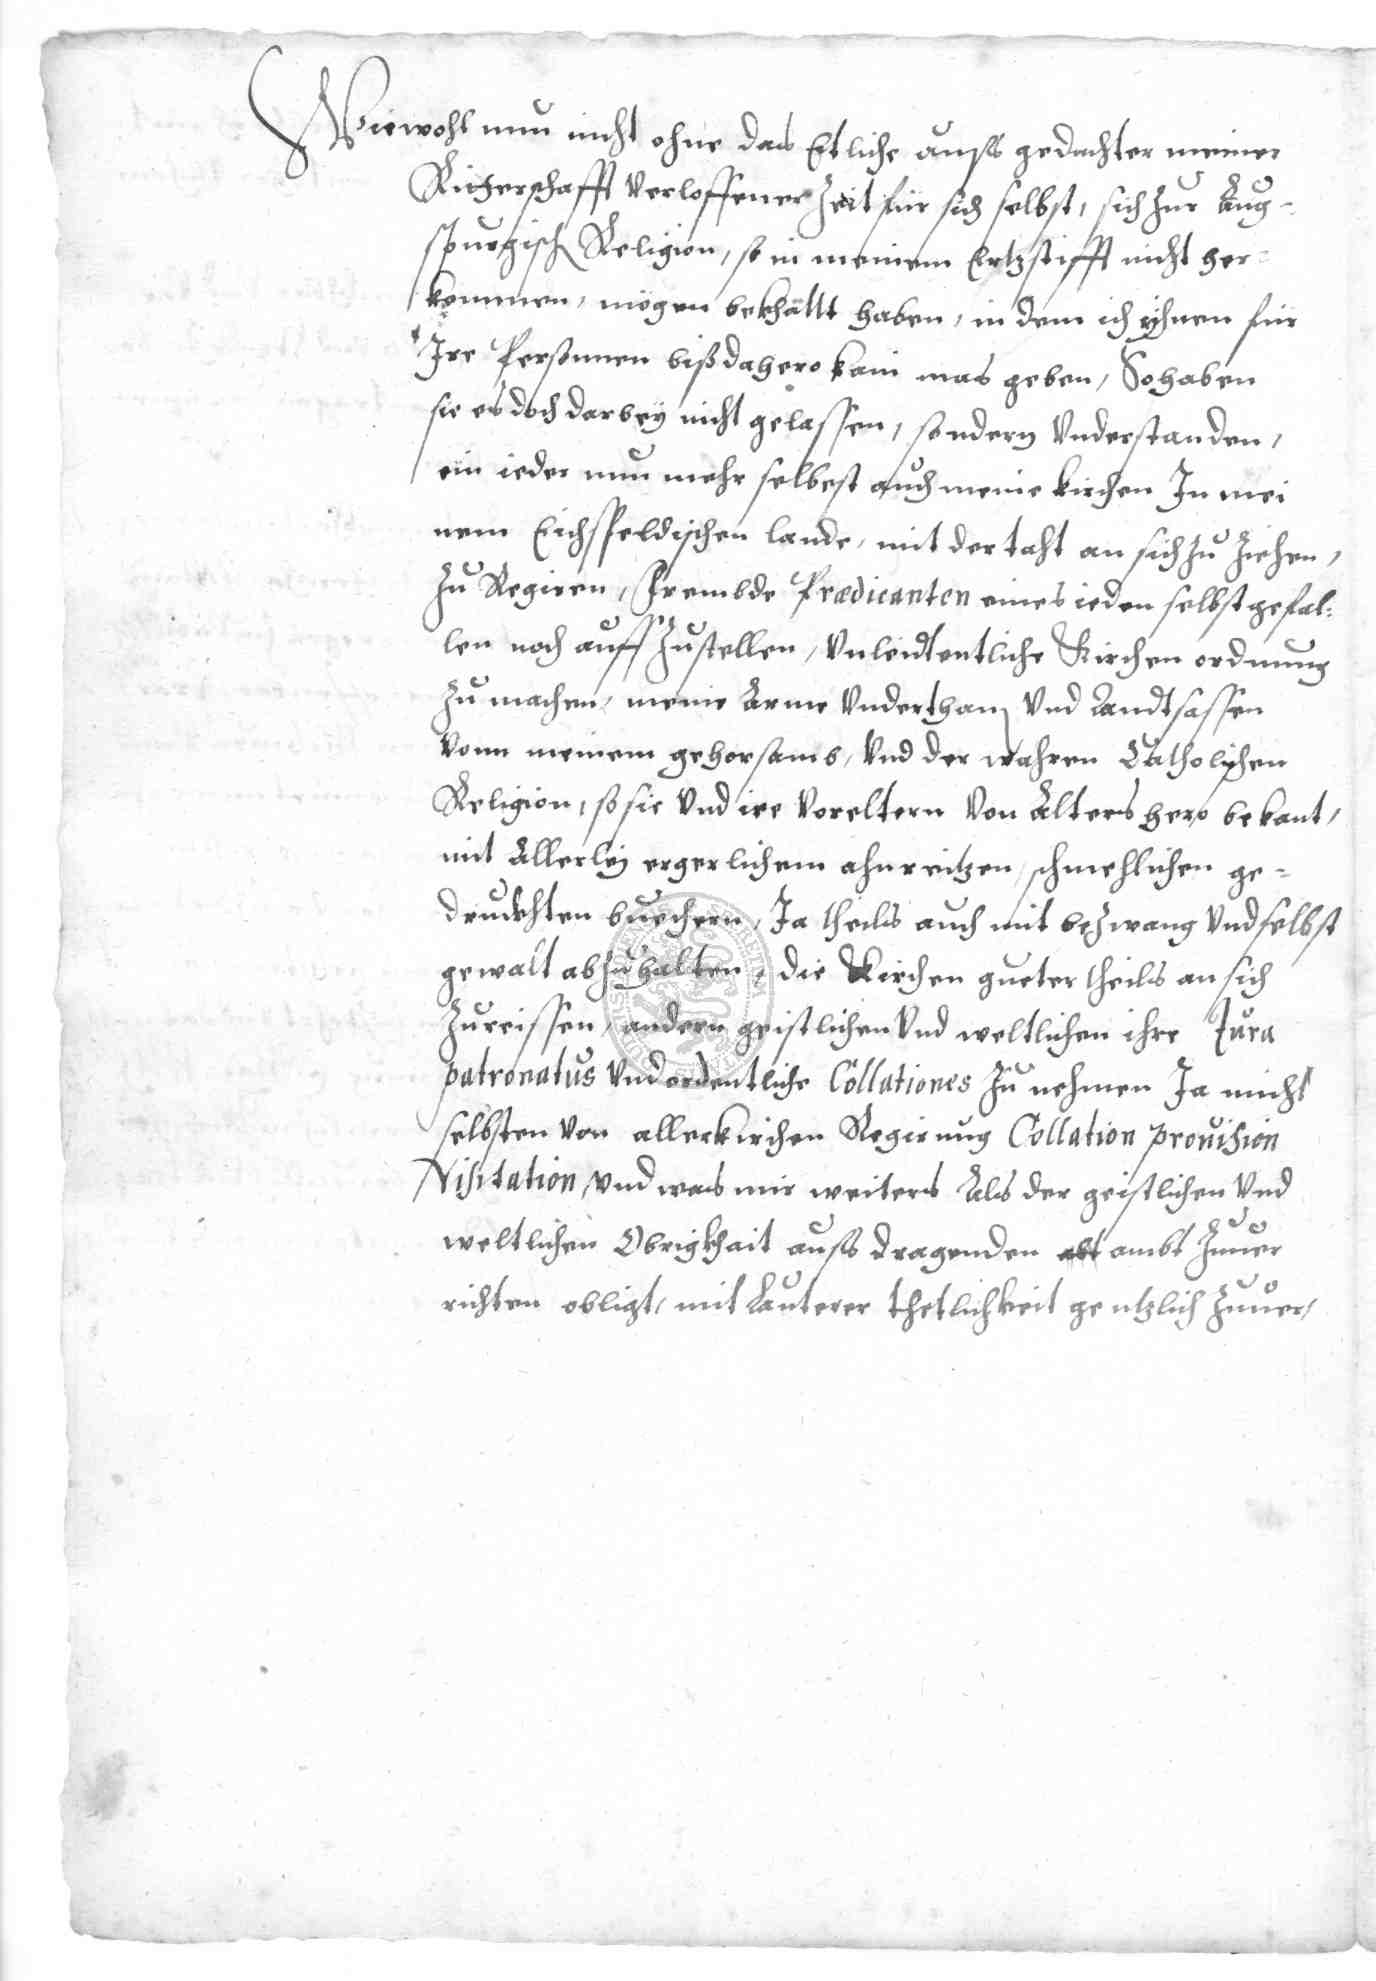 Wiewohl nun nicht ohne das Etliche auß gedachter meiner
Ritterschafft Verloffener Zeit für sich selbst, sich zur Aug-
spurgisch Religion, so in meinem Ertzstifft nicht her-
kommen, mögen bekhällt haben, in dem ich ihnen für
Ire Personnen bißdahero kain mas geben, So haben
sie es doch darbey nicht gelassen, sondern Understanden,
ein ieder nun mehr selbest auch meine kirchen In mei
nem Eichsfeldischen lande, mit der taht an sich zu ziehen,
zu Regiren, frembde Prædicanten eines ieden selbst gefal-
len noch auff zustellen, Unleidtentliche Kirchen ordnung
zu machen, meine Arme Underthan Und Landtsassen
Vonn meinem gehorsamb, Und der wahren Catholischen
Religion, so sie Und ire Voreltern Von Alters hero bekant,
mit Allerley ergerlichem ahnreitzen, schmehlichen ge-
druckhten buechern, Ja theils auch mit bezwang Und selbst
gewalt abzuhalten, die Kirchen gueter theils an sich
zureissen, andern geistlichen Und weltlichen ihre Jura
patronatus Und ordentliche Collationes zu nehmen Ja mich
selbsten Von aller kirchen Regirung Collation provision
Visitation, Und was mir weiters Als der geistlichen Und
weltlichen Obrigkhait auß dragenden ambt zuuer
richten obligt, mit Lauterer thetlichkeit gentzlich zuuer,